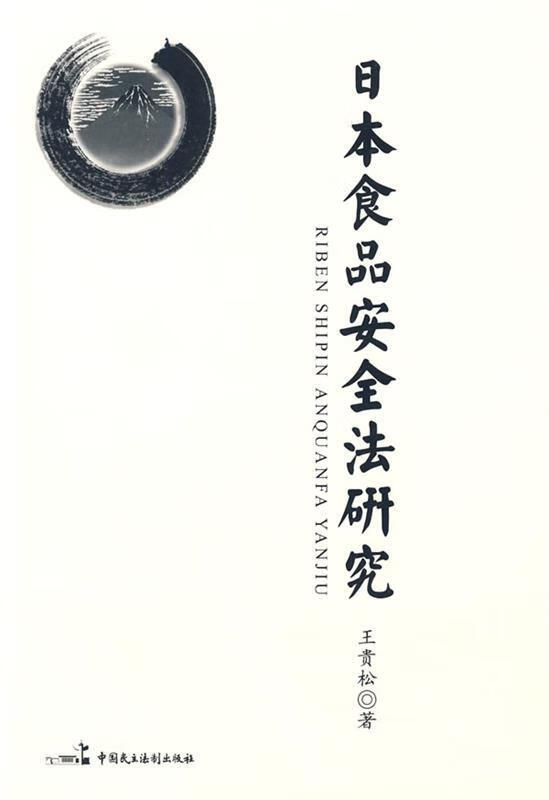 日本食品安全法研究
RIBEN SHIPIN ANQUANFA YANJIU
王贵松◎著
中国民主法制出版社